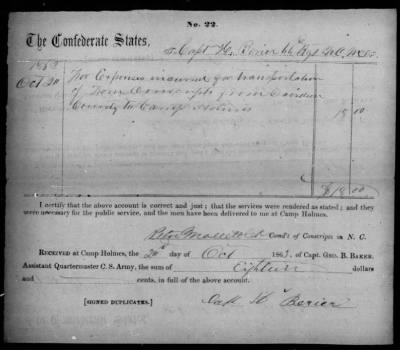 No. 22.
The Confederate States,
To Capt H.
1863
Oct 20 For Expenses incurred for transportation
of Four Conscripts from Davidson
County to Camp Holmes 18 00
$18.00
I certify that the above account is correct and just; that the services were rendered as stated; and they
were necessary for the public service, and the men have been delivered to me at Camp Holmes.
Peter Mallett Col Comd't of Conscripts in N. C.
Received at Camp Holmes, the 20th day of Oct 1863, of Capt. Geo. B. Baker,
Assistant Quartermaster C. S. Army, the sum of Eighteen dollars
and cents, in full of the above account.
[SIGNED DUPLICATES.] Capt H